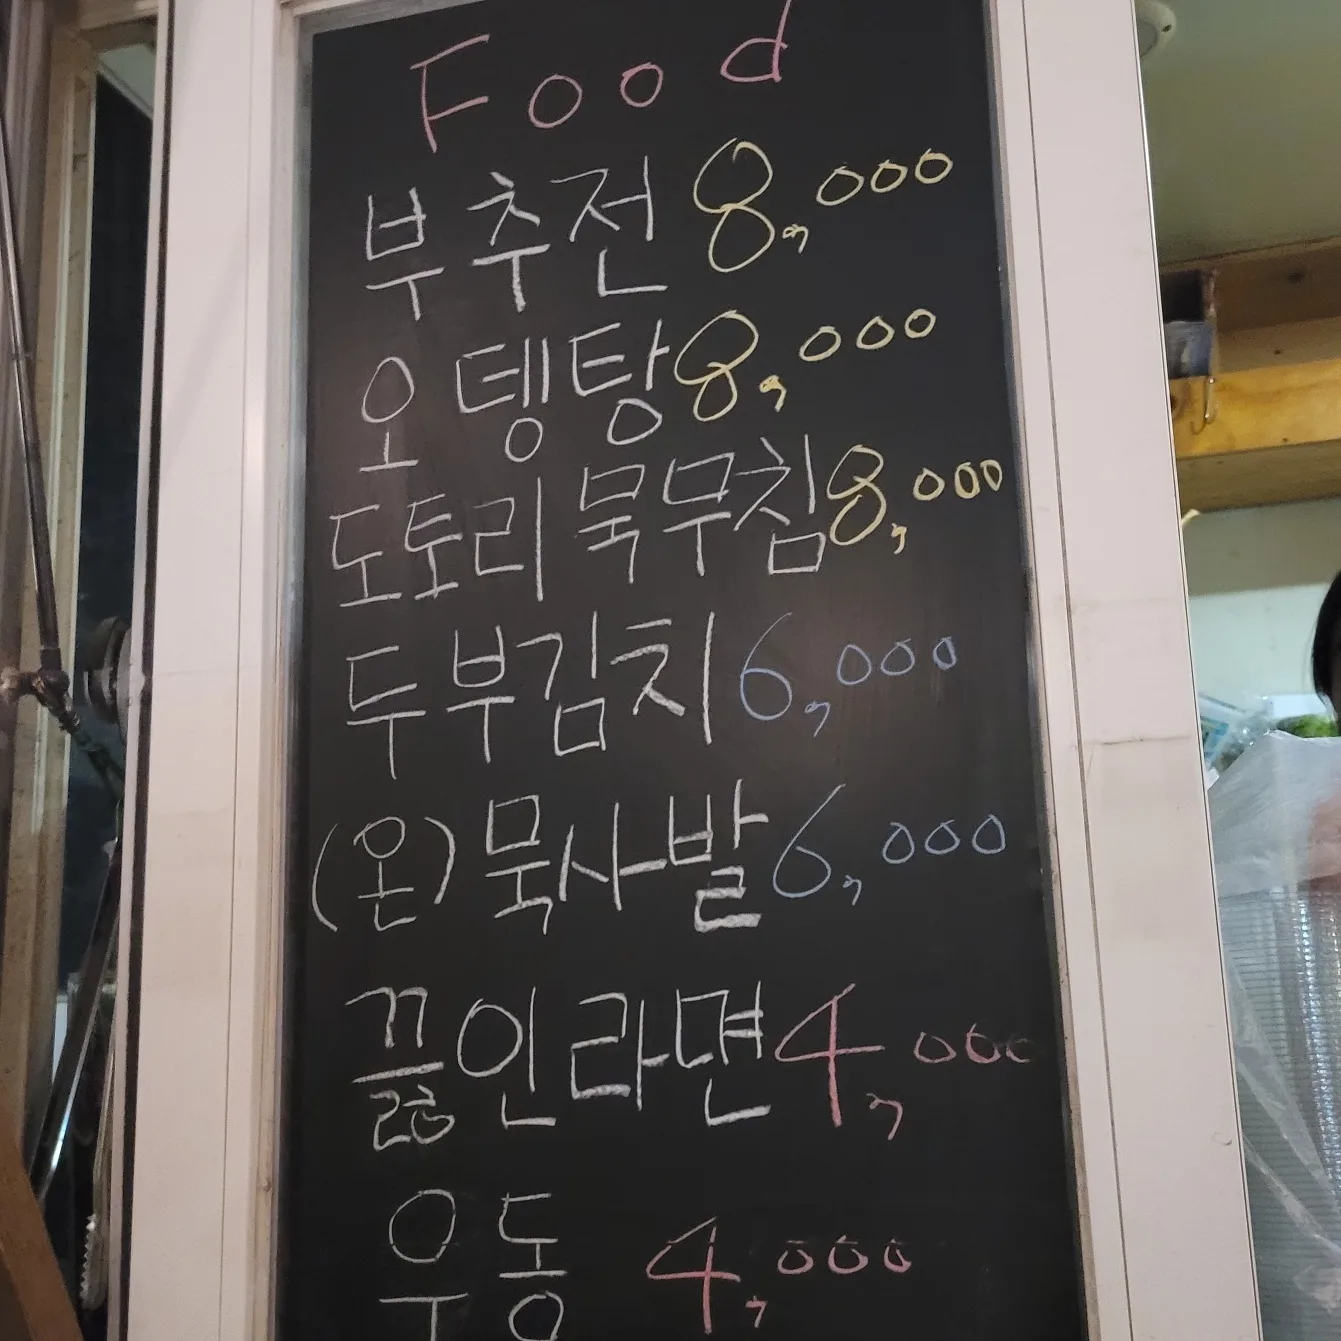 Food
부추전 8,000
오뎅탕 8,000
도토리묵무침 8,000
두부김치 6,000
(온)묵사발 6,000
끓인라면 4,000
우동 4,000